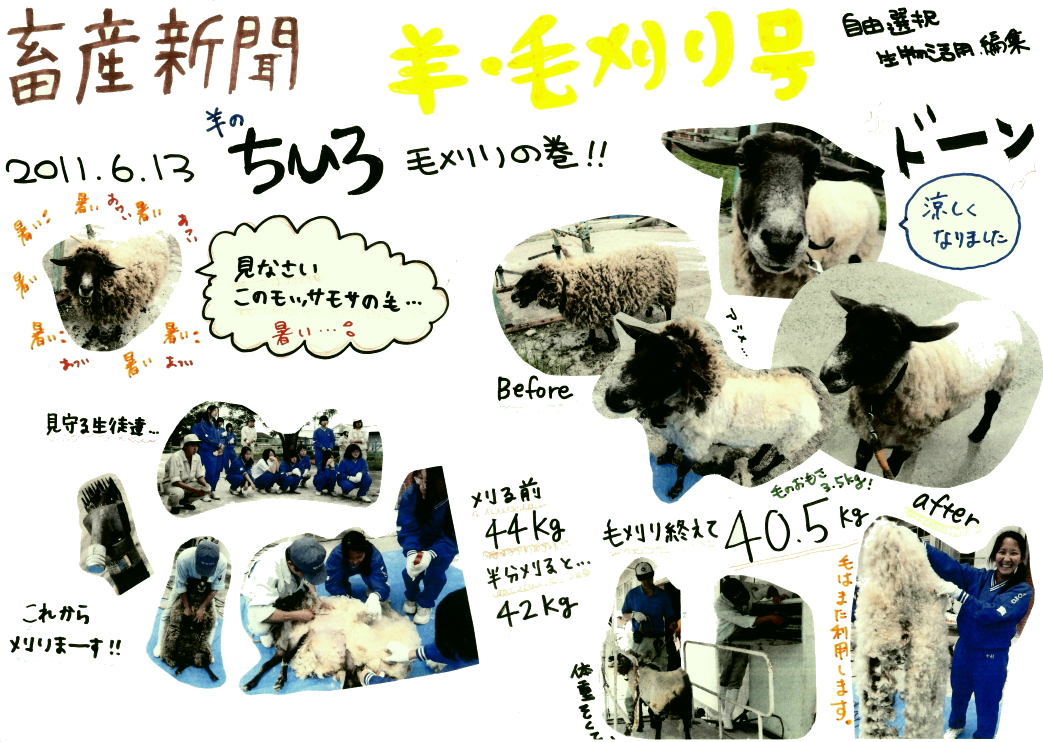 畜産新聞
羊・毛刈り号
自由選択
生物活用 編集
2011.6.13
羊の
ちひろ
毛刈りの巻!!
ドーン
涼しく
なりました
暑い
暑い
あつい
暑い
あつい
暑い
暑い
あつい
暑い
暑い
あつい
見なさい
このモッサモサの毛…
暑い…。
Before
アジメ…
after
見守る生徒達…
これから
刈りまーす!!
刈る前
44kg
半分刈ると…
42kg
毛のおもさ
3.5kg!
毛刈り終えて
40.5kg
毛はまた利用します。